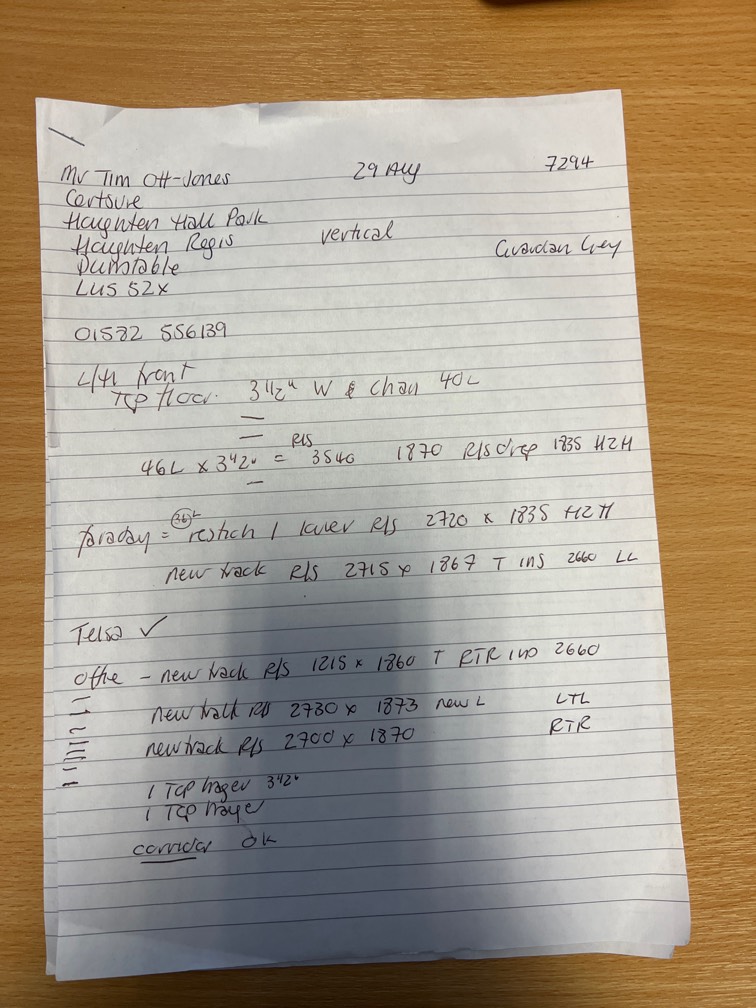 Mr Tim Ott-Jones 29 Aug 7294
Certsure
Haughten Hall Park
Haughten Regis vertical
Dunstable Guardan Grey
LU5 52x
01582 556139
L/H front
Top floor. 3 1/2" W & Chan 40L
46L x 3 1/2" = R/S 3540 1870 R/S drop 1835 H2H
faraday = 36L restich 1 lower R/S 2720 x 1835 H2H
new track R/S 2715 x 1867 T ins 2660 LL
Telsa ✓
offie - new track R/S 1215 x 1860 T RTR ins 2660
new track R/S 2730 x 1873 new L LTL
new track R/S 2700 x 1870 RTR
1 Top hager 3 1/2"
1 Top hager
corridor OK